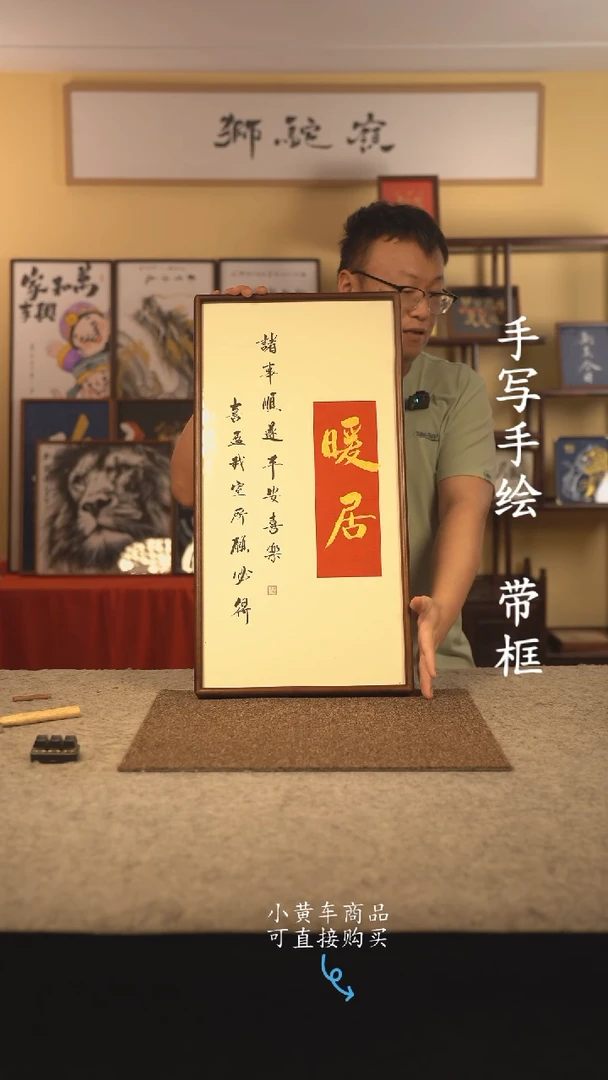 獅駝
家和萬
事興
暖居
諸事順遂平安喜樂
喜盈我室所願必得
手写手绘 带框
小黄车商品
可直接购买